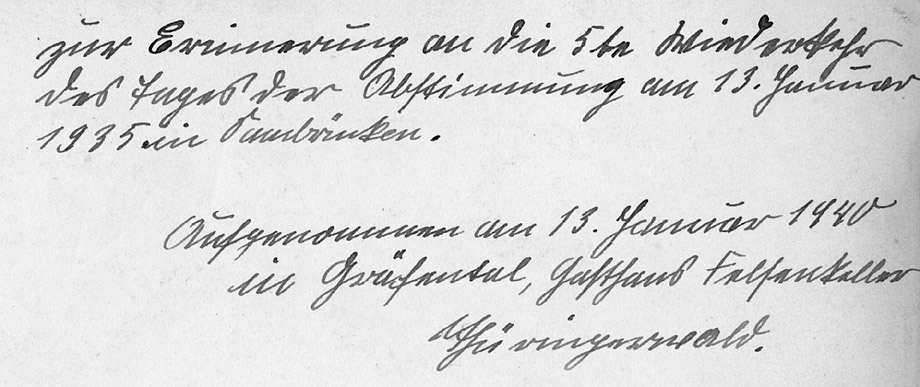 zur Erinnerung an die 5te Wiederkehr
des Tages der Abstimmung am 13. Januar
1935 in Saarbrücken.
Aufgenommen am 13. Januar 1940
in Gräfental, Gasthaus Felsenkeller
Thüringerwald.